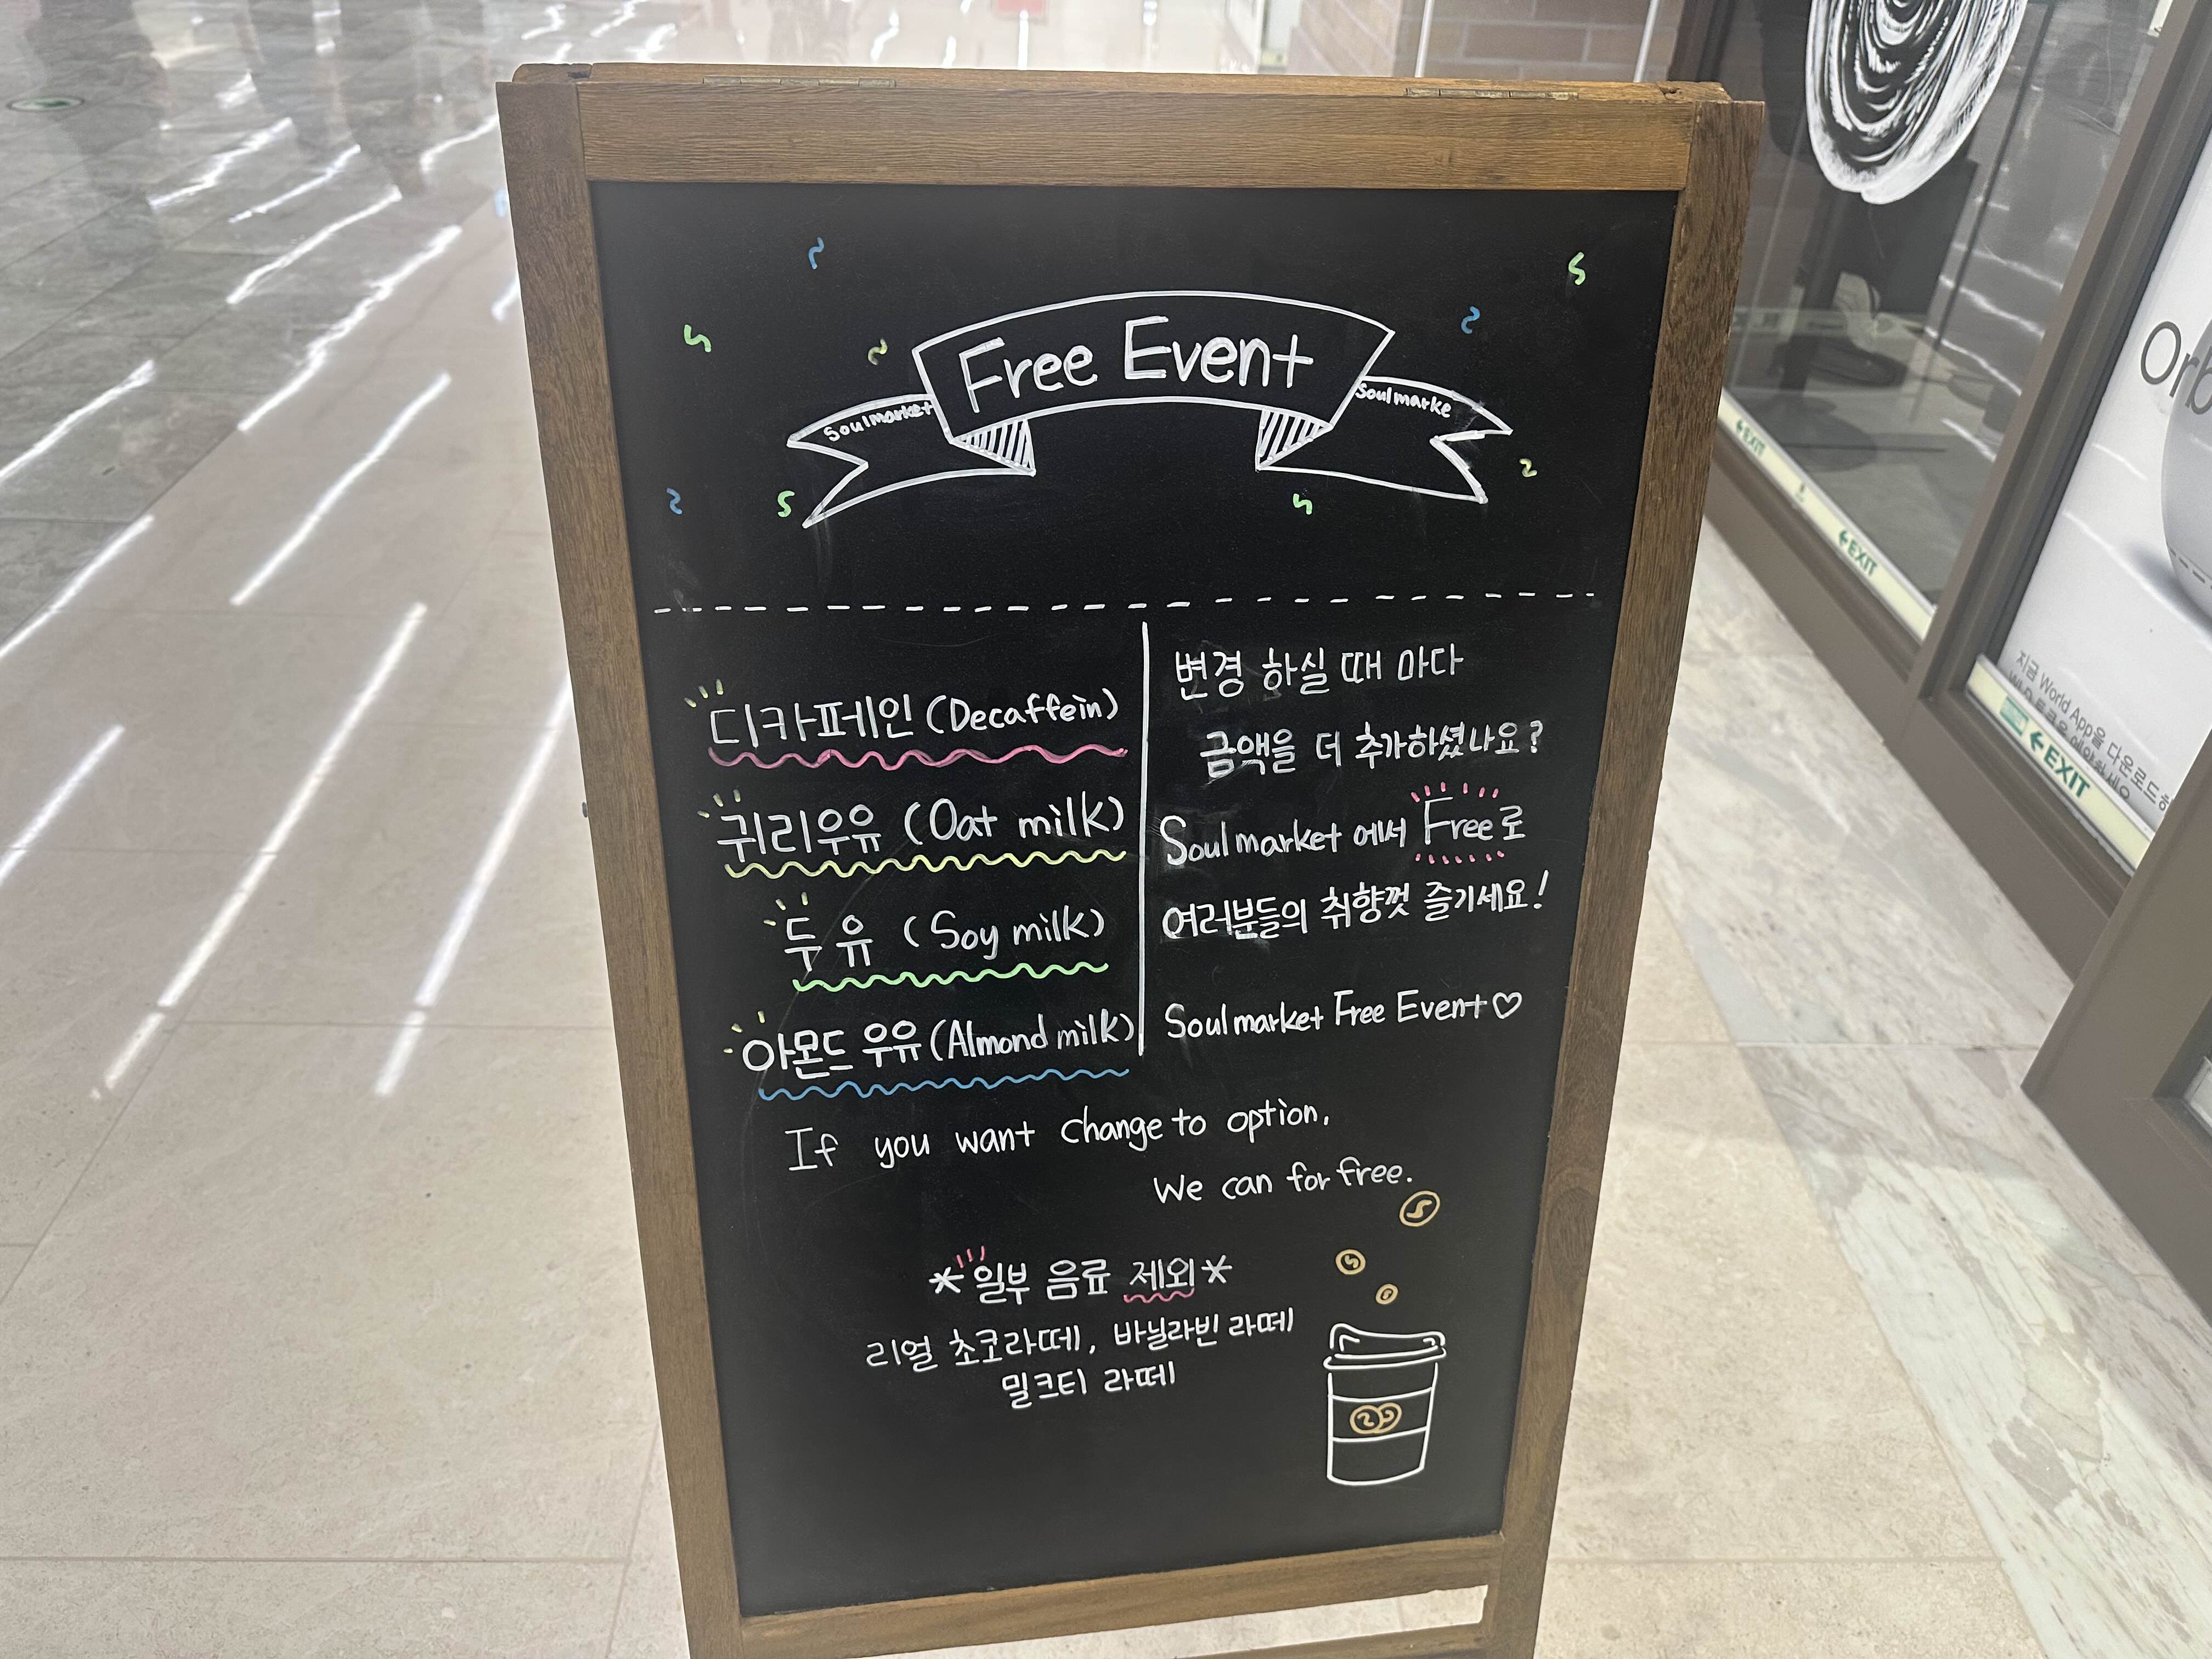 Free Event
Soulmarket
Soulmarke
디카페인 (Decaffein)
귀리우유 (Oat milk)
두유 (Soy milk)
아몬드 우유 (Almond milk)
변경 하실 때 마다
금액을 더 추가하셨나요?
Soulmarket 에서 Free로
여러분들의 취향껏 즐기세요!
Soulmarket Free Event♡
If you want change to option,
We can for free.
*일부 음료 제외*
리얼 초코라떼, 바닐라빈 라떼
밀크티 라떼
Orb
지금 World App을 다운로드
←EXIT
←EXIT
←EXIT